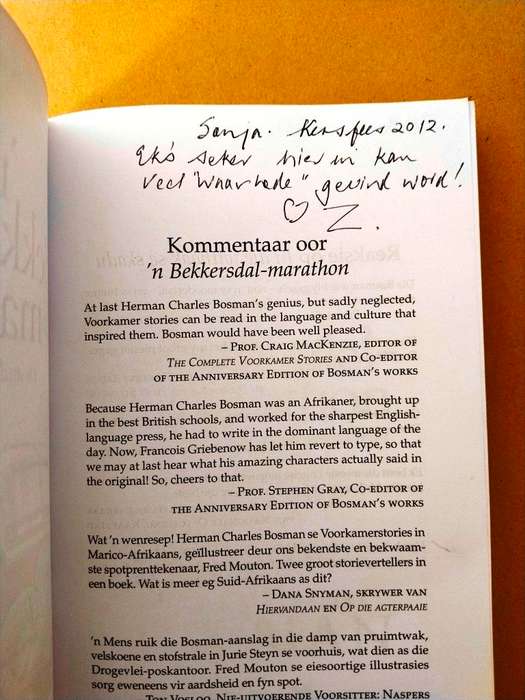 Sanja. Kersfees 2012.
Ek's seker hier in kan
veel "waarhede" gevind word!
Z.
Kommentaar oor
'n Bekkersdal-marathon
At last Herman Charles Bosman's genius, but sadly neglected,
Voorkamer stories can be read in the language and culture that
inspired them. Bosman would have been well pleased.
– Prof. Craig MacKenzie, editor of
The Complete Voorkamer Stories and Co-editor
of the Anniversary Edition of Bosman's works
Because Herman Charles Bosman was an Afrikaner, brought up
in the best British schools, and worked for the sharpest English-
language press, he had to write in the dominant language of the
day. Now, Francois Griebenow has let him revert to type, so that
we may at last hear what his amazing characters actually said in
the original! So, cheers to that.
– Prof. Stephen Gray, Co-editor of
the Anniversary Edition of Bosman's works
Wat 'n wenresep! Herman Charles Bosman se Voorkamerstories in
Marico-Afrikaans, geïllustreer deur ons bekendste en bekwaam-
ste spotprenttekenaar, Fred Mouton. Twee groot storievertellers in
een boek. Wat is meer eg Suid-Afrikaans as dit?
– Dana Snyman, skrywer van
Hiervandaan en Op die agterpaaie
'n Mens ruik die Bosman-aanslag in die damp van pruimtwak,
velskoene en stofstrale in Jurie Steyn se voorhuis, wat dien as die
Drogevlei-poskantoor. Fred Mouton se eiesoortige illustrasies
sorg eweneens vir aardsheid en fyn spot.
Ton Vosloo, Nie-uitvoerende Voorsitter: Naspers